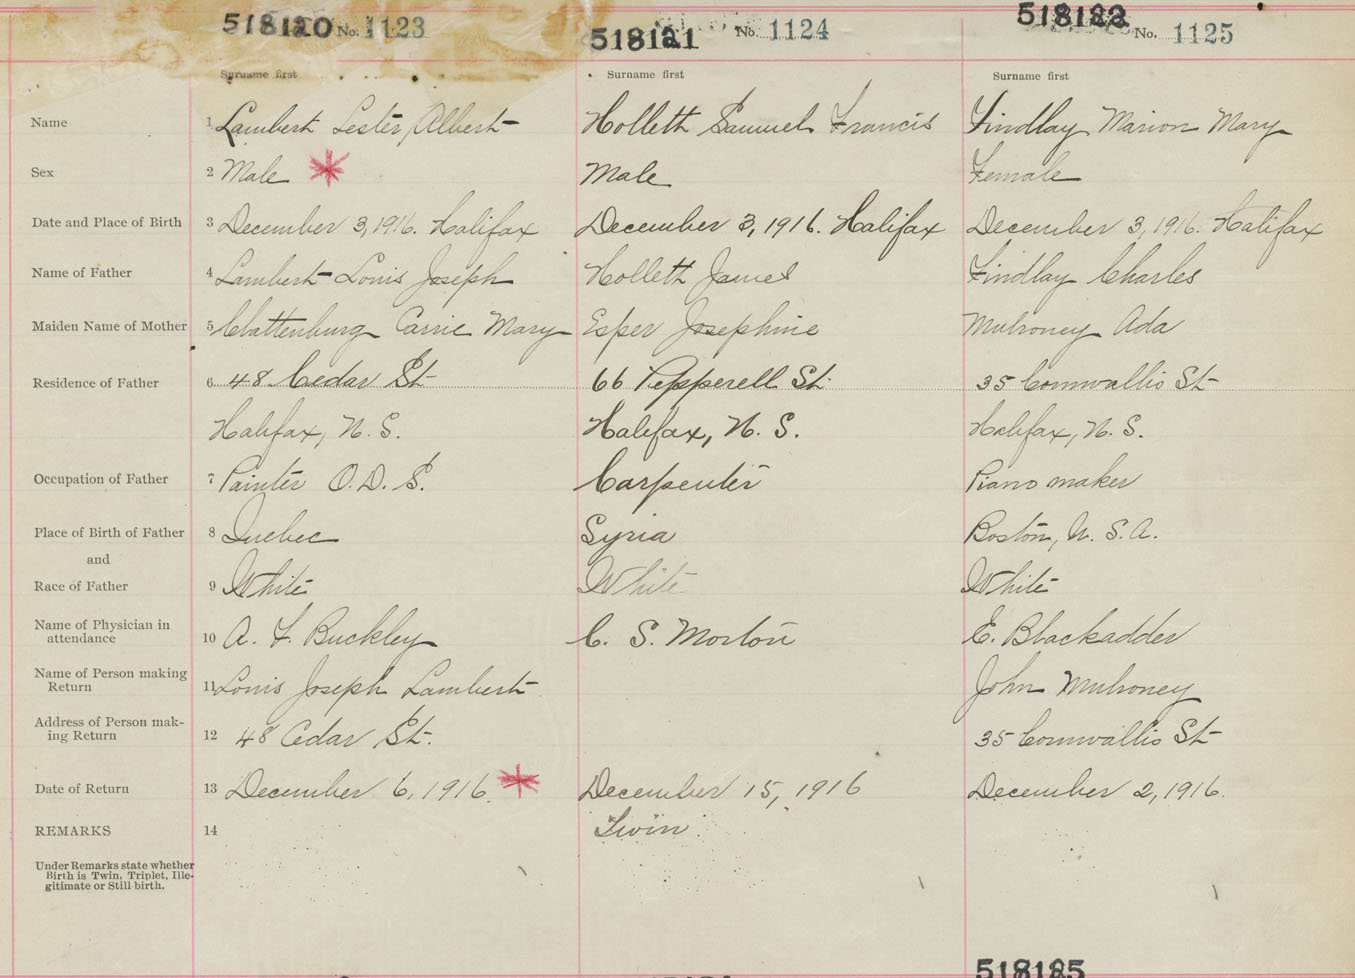 518120 No. 1123 518121 No. 1124 518122 No. 1125
Surname first Surname first Surname first
Name 1 Lambert Lester Albert Holleth Samuel Francis Findlay Marion Mary
Sex 2 Male Male Female
Date and Place of Birth 3 December 3, 1916. Halifax December 3, 1916. Halifax December 3, 1916. Halifax
Name of Father 4 Lambert Louis Joseph Holleth James Findlay Charles
Maiden Name of Mother 5 Clattenburg Carrie Mary Esper Josephine Mulroney Ada
Residence of Father 6 48 Cedar St 66 Pepperell St. 35 Cornwallis St
Halifax, N. S. Halifax, N. S. Halifax, N. S.
Occupation of Father 7 Painter O. D. S. Carpenter Piano maker
Place of Birth of Father 8 Quebec Syria Boston, U. S. A.
and
Race of Father 9 White White White
Name of Physician in
attendance 10 A. F. Buckley C. S. Morton E. Blackadder
Name of Person making
Return 11 Louis Joseph Lambert John Mulroney
Address of Person mak-
ing Return 12 48 Cedar St. 35 Cornwallis St
Date of Return 13 December 6, 1916. December 15, 1916 December 2, 1916.
REMARKS 14 Twin.
Under Remarks state whether
Birth is Twin, Triplet, Ille-
gitimate or Still birth.
518125